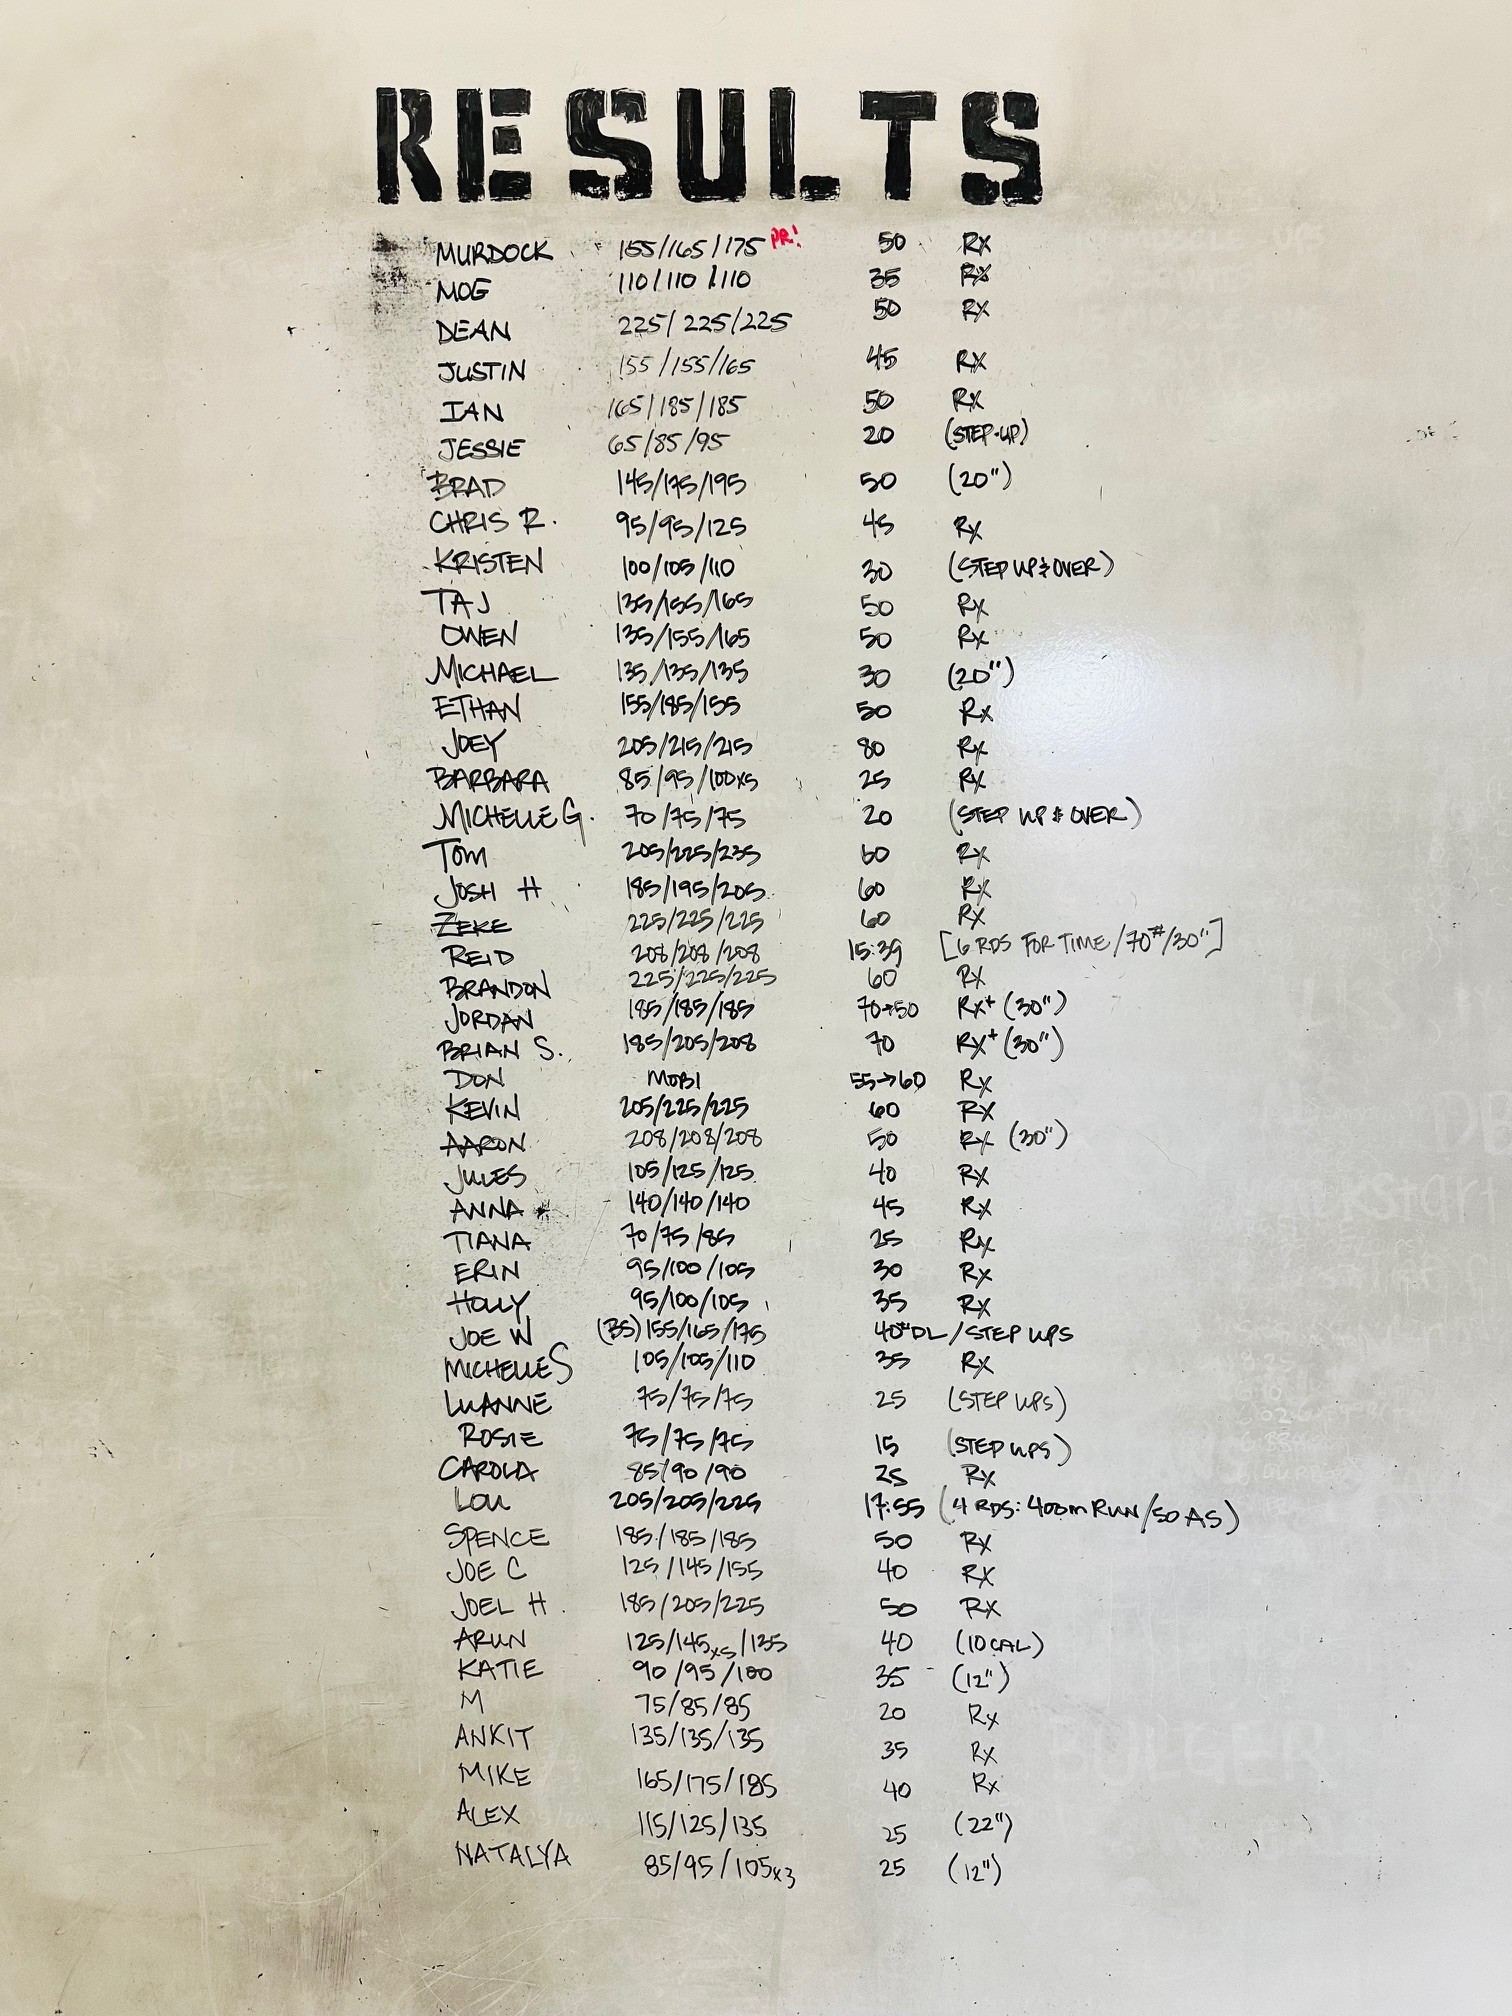 RESULTS
MURDOCK 155/165/175 PR! 50 RX
MOG 110/110/110 35 RX
DEAN 225/225/225 50 RX
JUSTIN 155/155/165 45 RX
IAN 165/185/185 50 RX
JESSIE 65/85/95 20 (STEP-UP)
BRAD 145/175/195 50 (20")
CHRIS R. 95/95/125 45 RX
KRISTEN 100/105/110 30 (STEP UP & OVER)
TAJ 135/155/165 50 RX
OWEN 135/155/165 50 RX
MICHAEL 135/135/135 30 (20")
ETHAN 155/185/155 50 RX
JOEY 205/215/215 80 RX
BARBARA 85/95/100x5 25 RX
MICHELLE G. 70/75/75 20 (STEP UP & OVER)
TOM 205/225/235 60 RX
JOSH H 185/195/205 60 RX
ZEKE 225/225/225 60 RX
REID 208/208/208 15:39 [6 RDS FOR TIME/70#/30"]
BRANDON 225/225/225 60 RX
JORDAN 185/185/185 70→50 RX+ (30")
BRIAN S. 185/205/208 70 RX+ (30")
DON MOBI 55→60 RX
KEVIN 205/225/225 60 RX
AARON 208/208/208 50 RX (30")
JULES 105/125/125 40 RX
ANNA 140/140/140 45 RX
TIANA 70/75/85 25 RX
ERIN 95/100/105 30 RX
HOLLY 95/100/105 35 RX
JOE W (BS) 155/165/175 40# DL/STEP UPS
MICHELLE S 105/105/110 35 RX
LUANNE 75/75/75 25 (STEP UPS)
ROSIE 75/75/75 15 (STEP UPS)
CAROLA 85/90/90 25 RX
LOU 205/205/225 17:55 (4 RDS: 400m RUN/50 AS)
SPENCE 185/185/185 50 RX
JOE C 125/145/155 40 RX
JOEL H. 185/205/225 50 RX
ARUN 125/145x5/135 40 (10 CAL)
KATIE 90/95/100 35 (12")
M 75/85/85 20 RX
ANKIT 135/135/135 35 RX
MIKE 165/175/185 40 RX
ALEX 115/125/135 25 (22")
NATALYA 85/95/105x3 25 (12")